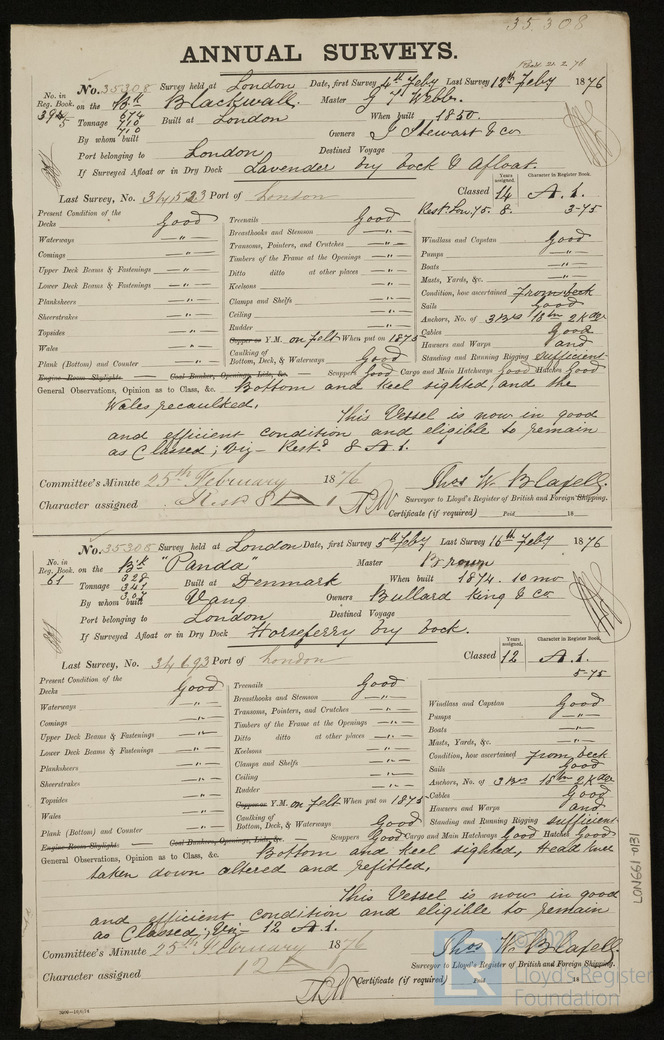 35.308
ANNUAL SURVEYS.
No. 35308 Survey held at London Date, first Survey 4th Feby Last Survey 12th Feby 1876
No. in Reg. Book. on the Bk Blackwall. Master G T Webb.
394 Tonnage 674 Built at London When built 1850.
5 710
By whom built 710 Owners J Stewart & Co
Port belonging to London Destined Voyage
If Surveyed Afloat or in Dry Dock Lavender Dry Dock & Afloat.
Last Survey, No. 34523 Port of London Classed Years assigned. 14 Character in Register Book. A.1.
Rest. Lon. 75. 8. 3-75
Present Condition of the
Decks Good
Waterways — " —
Comings — " —
Upper Deck Beams & Fastenings — " —
Lower Deck Beams & Fastenings — " —
Planksheers — " —
Sheerstrakes — " —
Topsides — " —
Wales — " —
Plank (Bottom) and Counter — " —
Engine Room Skylights. — Coal Bunker, Openings, Lids, &c. —
Treenails Good
Breasthooks and Stemson — " —
Transoms, Pointers, and Crutches — " —
Timbers of the Frame at the Openings — " —
Ditto ditto at other places — " —
Keelsons — " —
Clamps and Shelfs — " —
Ceiling — " —
Rudder — " —
Copper or Y.M. on felt When put on 1875
Caulking of Bottom, Deck, & Waterways Good
Scuppers Good Cargo and Main Hatchways Good Hatches Good
Windlass and Capstan Good
Pumps — " —
Boats — " —
Masts, Yards, &c. — " —
Condition, how ascertained From Deck
Sails Good
Anchors, No. of 3 Brs 1 Sm 2 Kdgs
Cables Good
Hawsers and Warps and
Standing and Running Rigging Sufficient
General Observations, Opinion as to Class, &c. Bottom and Keel sighted, and the
Wales recaulked.
This Vessel is now in good
and efficient condition and eligible to remain
as Classed; Viz - Restd 8 A.1.
Committee's Minute 25th February 1876
Character assigned Rest 8 A 1
Thos W. Blafell.
Surveyor to Lloyd's Register of British and Foreign Shipping.
Certificate (if required) Paid 18
No. 35305 Survey held at London Date, first Survey 5th Feby Last Survey 16th Feby 1876
No. in Reg. Book. on the Bk "Panda" Master Brown
61 Tonnage 328 Built at Denmark When built 1874. 10 mo
341
By whom built 307 Vang Owners Bullard King & Co
Port belonging to London Destined Voyage
If Surveyed Afloat or in Dry Dock Horseferry Dry Dock.
Last Survey, No. 34693 Port of London Classed Years assigned. 12 Character in Register Book. A.1.
5-75
Present Condition of the
Decks Good
Waterways — " —
Comings — " —
Upper Deck Beams & Fastenings — " —
Lower Deck Beams & Fastenings — " —
Planksheers — " —
Sheerstrakes — " —
Topsides — " —
Wales — " —
Plank (Bottom) and Counter — " —
Engine Room Skylights. — Coal Bunker, Openings, Lids, &c. —
Treenails Good
Breasthooks and Stemson — " —
Transoms, Pointers, and Crutches — " —
Timbers of the Frame at the Openings — " —
Ditto ditto at other places — " —
Keelsons — " —
Clamps and Shelfs — " —
Ceiling — " —
Rudder — " —
Copper or Y.M. on felt When put on 1875
Caulking of Bottom, Deck, & Waterways Good
Scuppers Good Cargo and Main Hatchways Good Hatches Good
Windlass and Capstan Good
Pumps — " —
Boats — " —
Masts, Yards, &c. — " —
Condition, how ascertained From Deck
Sails Good
Anchors, No. of 3 Brs 1 Sm 2 Kdgs
Cables Good
Hawsers and Warps and
Standing and Running Rigging Sufficient
General Observations, Opinion as to Class, &c. Bottom and Keel sighted, Head Knee
taken down altered and refitted.
This Vessel is now in good
and efficient condition and eligible to remain
as Classed; Viz - 12 A.1.
Committee's Minute 25th February 1876
Character assigned 12 A 1
Thos W. Blafell.
Surveyor to Lloyd's Register of British and Foreign Shipping.
Certificate (if required) Paid 18
LON661-0131
© 2021
LR
Lloyd's Register
Foundation